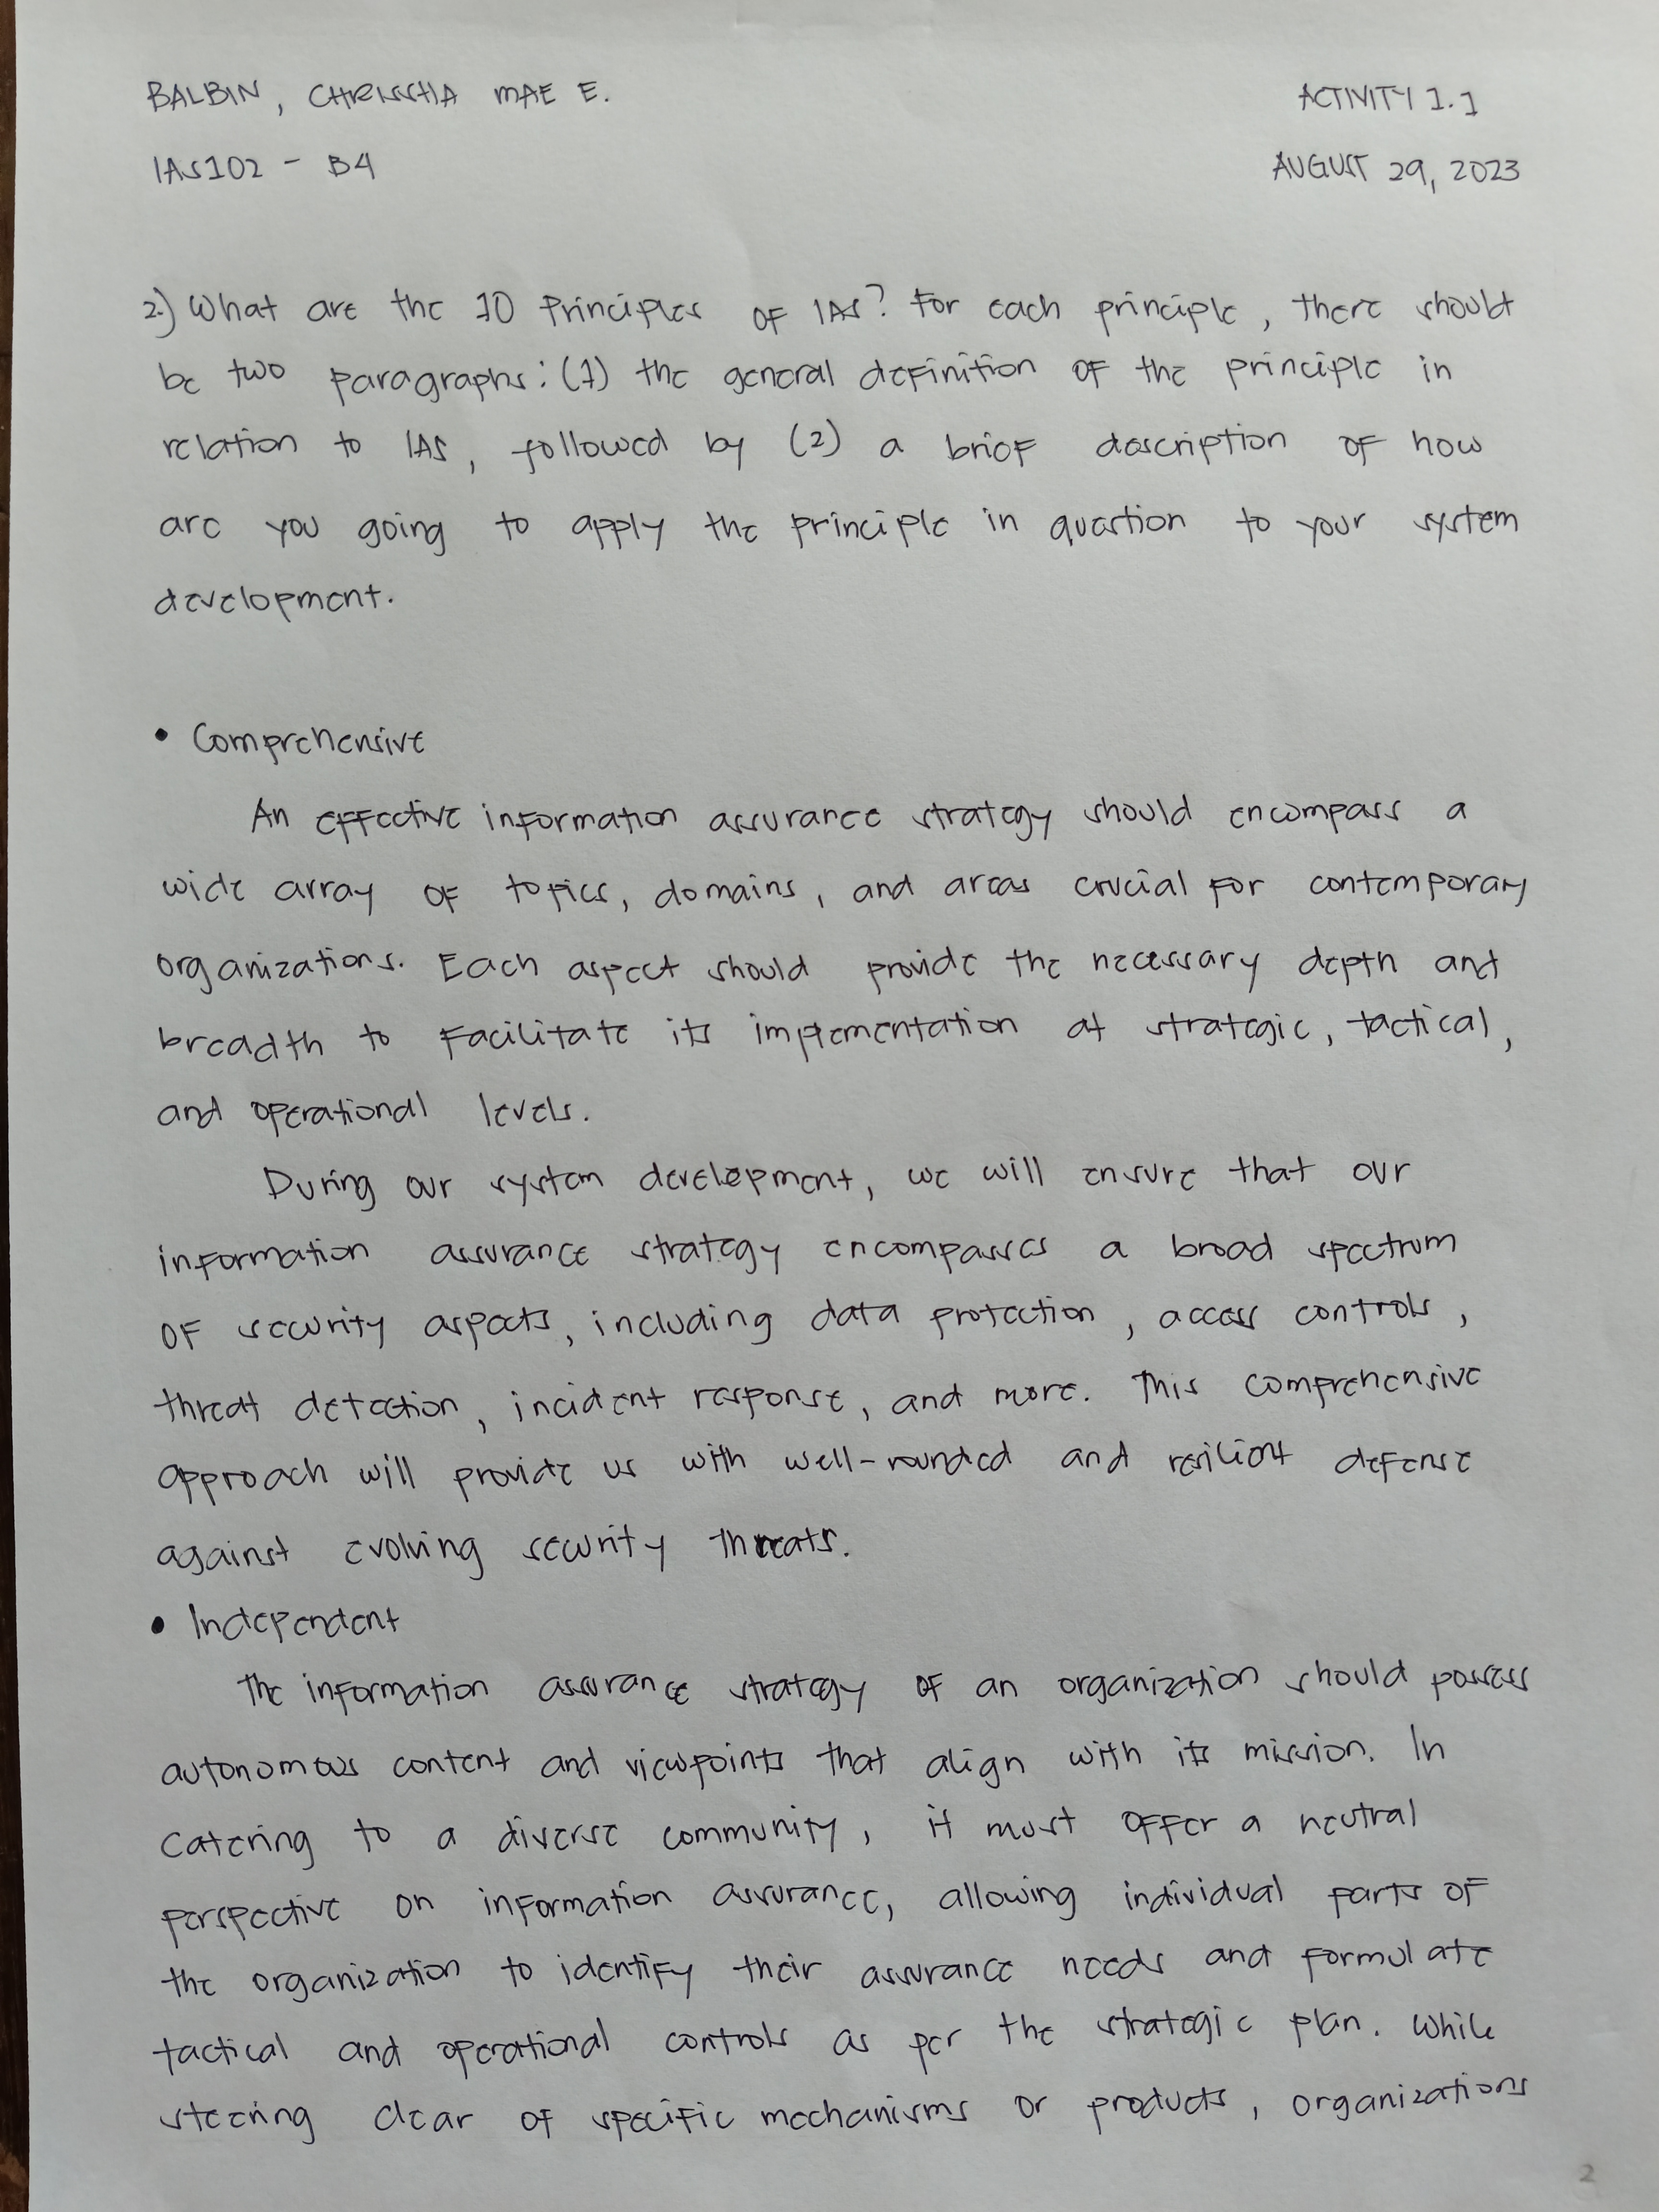 BALBIN, CHRISSHIA MAE E. ACTIVITY 1.1
IAS102 - B4 AUGUST 29, 2023
2.) What are the 10 Principles of IAS? For each principle, there should
be two paragraphs: (1) the general definition of the principle in
relation to IAS, followed by (2) a brief description of how
are you going to apply the principle in question to your system
development.
• Comprehensive
An effective information assurance strategy should encompass a
wide array of topics, domains, and areas crucial for contemporary
organizations. Each aspect should provide the necessary depth and
breadth to facilitate its implementation at strategic, tactical,
and operational levels.
During our system development, we will ensure that our
information assurance strategy encompasses a broad spectrum
of security aspects, including data protection, access controls,
threat detection, incident response, and more. This comprehensive
approach will provide us with well-rounded and resilient defense
against evolving security threats.
• Independent
The information assurance strategy of an organization should possess
autonomous content and viewpoints that align with its mission. In
catering to a diverse community, it must offer a neutral
perspective on information assurance, allowing individual parts of
the organization to identify their assurance needs and formulate
tactical and operational controls as per the strategic plan. While
steering clear of specific mechanisms or products, organizations
2